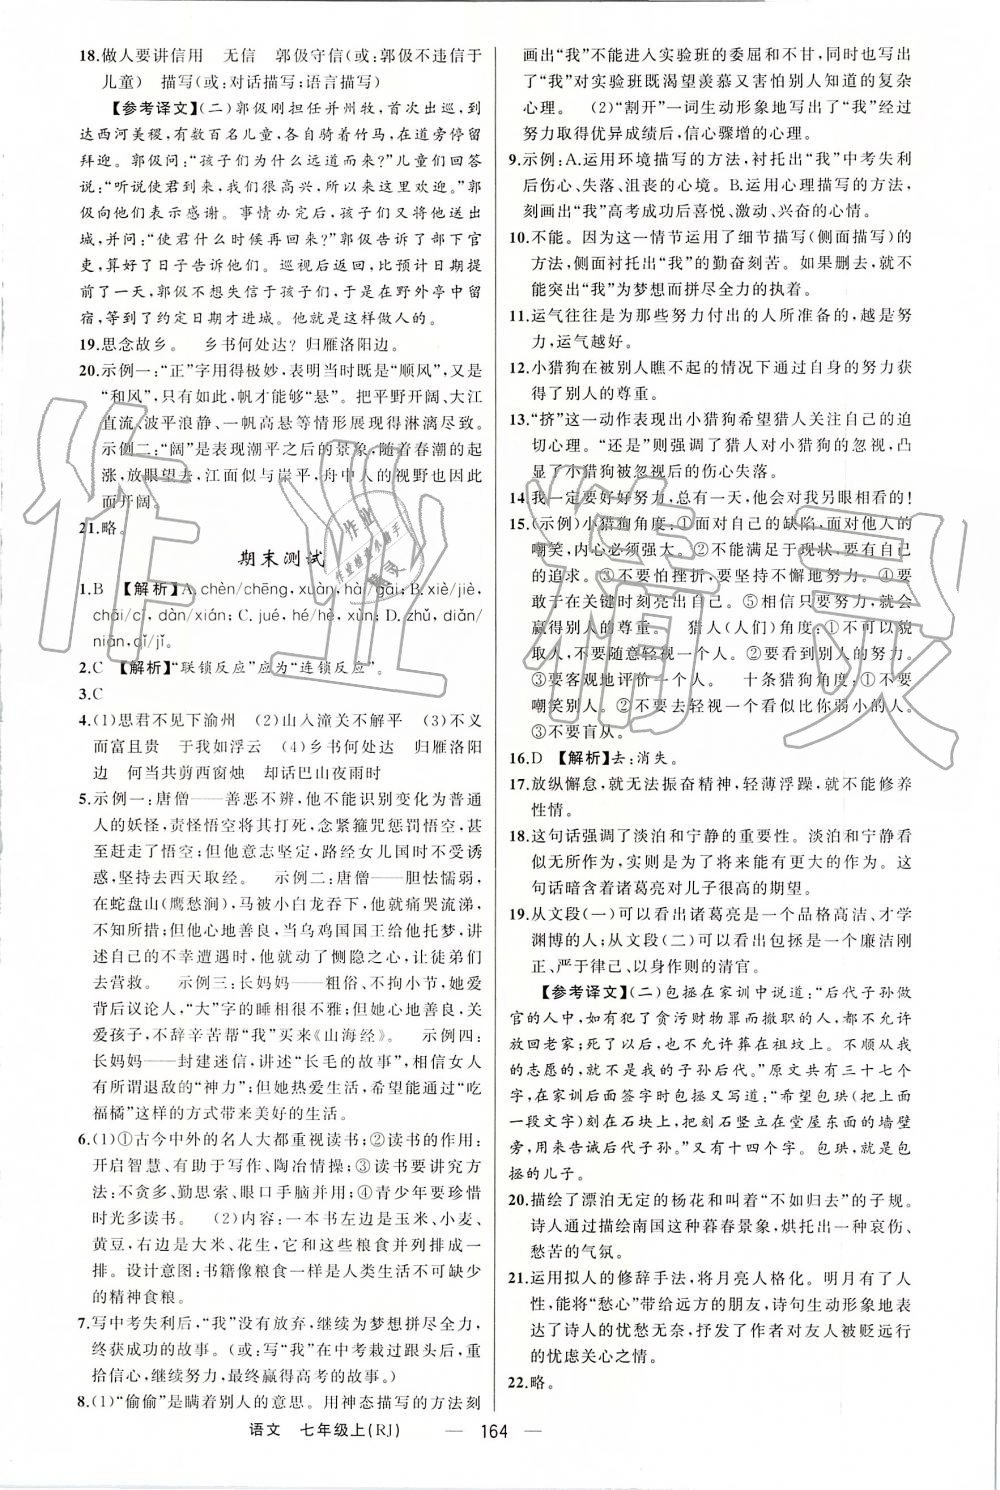 18.做人要讲信用　无信　郭伋守信(或:郭伋不违信于
儿童)　描写(或:对话描写;语言描写)
【参考译文】(二)郭伋刚担任并州牧,首次出巡,到
达西河美稷,有数百名儿童,各自骑着竹马,在道旁停留
拜迎。郭伋问:“孩子们为什么远道而来?”儿童们回答
说:“听说使君到来,我们很高兴,所以来这里欢迎。”郭
伋向他们表示感谢。事情办完后,孩子们又将他送出
城,并问:“使君什么时候再回来?”郭伋告诉了部下官
吏,算好了日子告诉他们。巡视后返回,比预计日期提
前了一天,郭伋不想失信于孩子们,于是在野外亭中留
宿,等到了约定日期才进城。他就是这样做人的。
19.思念故乡。　乡书何处达?归雁洛阳边。
20.示例一:“正”字用得极妙,表明当时既是“顺风”,又是
“和风”,只有如此,帆才能够“悬”。把平野开阔、大江
直流、波平浪静、一帆高悬等情形展现得淋漓尽致。
示例二:“阔”是表现潮平之后的景象,随着春潮的起
涨,放眼望去,江面似与岸平,舟中人的视野也因此
而开阔。
21.略。
期末测试
1.B　【解析】A.chèn/chēng,xuàn,hài/gāi;B.xiè/jiè,
chāi/cì,dàn/xián;C.jué,hé/hè,xùn;D.zhǔ,diǎn/
niǎn,qǐ/jǐ。
2.C　【解析】“联锁反应”应为“连锁反应”。
3.C
4.(1)思君不见下渝州　(2)山入潼关不解平　(3)不义
而富且贵　于我如浮云　(4)乡书何处达　归雁洛阳
边　何当共剪西窗烛　却话巴山夜雨时
5.示例一:唐僧——善恶不辨,他不能识别变化为普通
人的妖怪,责怪悟空将其打死,念紧箍咒惩罚悟空,甚
至赶走了悟空;但他意志坚定,路经女儿国时不受诱
惑,坚持去西天取经。　示例二:唐僧——胆怯懦弱,
在蛇盘山(鹰愁涧),马被小白龙吞时,他就痛哭流涕,
不知所措;但他心地善良,当乌鸡国国王给他托梦,讲
述自己的不幸遭遇时,他就动了恻隐之心,让徒弟们
去营救。　示例三:长妈妈——粗俗、不拘小节,她爱
背后议论人,“大”字的睡相很可笑;但她心地善良,
关爱孩子,不辞辛苦帮“我”买来《山海经》。　示例四:
长妈妈——封建迷信,讲述“长毛的故事”,相信女人
有所谓退敌的“神力”;但她热爱生活,希望能通过“吃
福橘”这样的方式带来美好的生活。
6.(1)①古今中外的名人大都重视读书;②读书的作用:
开启智慧、有助于写作、陶冶情操;③读书要讲究方
法:不贪多、勤思索、眼口手脑并用;④青少年要珍惜
时光多读书。　(2)内容:一本书左边是玉米、小麦、
黄豆,右边是大米、花生,它和这些粮食并列排成一
排。设计意图:书籍像粮食一样是人类生活不可缺少
的精神食粮。
7.写中考失利后,“我”没有放弃,继续为梦想拼尽全力,
终获成功的故事。(或:写“我”在中考栽过跟头后,重
拾信心,继续努力,最终赢得高考的故事。)
8.(1)“偷偷”是瞒着别人的意思。用神态描写的方法刻
画出“我”不能进入实验班的委屈和不甘,同时也写出
了“我”对实验班既渴望羡慕又害怕别人知道的复杂
心理。　(2)“割开”一词生动形象地写出了“我”经过
努力取得优异成绩后,信心骤增的心理。
9.示例:A.运用环境描写的方法,衬托出“我”中考失利
后伤心、失落、沮丧的心境。B.运用心理描写的方法,
刻画出“我”高考成功后喜悦、激动、兴奋的心情。
10.不能。因为这一情节运用了细节描写(侧面描写)的
方法,侧面衬托出“我”的勤奋刻苦。如果删去,就不
能突出“我”为梦想而拼尽全力的执着。
11.运气往往是为那些努力付出的人所准备的,越是努
力,运气越好。
12.小猎狗在被别人瞧不起的情况下通过自身的努力获
得了别人的尊重。
13.“挤”这一动作表现出小猎狗希望猎人关注自己的迫
切心理。“还是”则强调了猎人对小猎狗的忽视,凸
显了小猎狗被忽视后的伤心失落。
14.我一定要好好努力,总有一天,他会对我另眼相看的!
15.(示例)小猎狗角度:①面对自己的缺陷,面对他人的
嘲笑,内心必须强大。②不能满足于现状,要有自己
的追求。③不要怕挫折,要坚持不懈地努力。④要
敢于在关键时刻亮出自己。⑤相信只要努力,就会
赢得别人的尊重。　猎人(人们)角度:①不可以貌
取人,不要随意轻视一个人。②要看到别人的努力。
③要客观地评价一个人。　十条猎狗角度:①不要
嘲笑别人。②不要去轻视一个看似比你弱小的人。
③不要盲从。
16.D　【解析】去:消失。
17.放纵懈怠,就无法振奋精神,轻薄浮躁,就不能修养
性情。
18.这句话强调了淡泊和宁静的重要性。淡泊和宁静看
似无所作为,实则是为了将来能有更大的作为。这
句话暗含着诸葛亮对儿子很高的期望。
19.从文段(一)可以看出诸葛亮是一个品格高洁、才学
渊博的人;从文段(二)可以看出包拯是一个廉洁刚
正、严于律己、以身作则的清官。
【参考译文】(二)包拯在家训中说道:“后代子孙做
官的人中,如有犯了贪污财物罪而撤职的人,都不允许
放回老家;死了以后,也不允许葬在祖坟上。不顺从我
的志愿的,就不是我的子孙后代。”原文共有三十七个
字,在家训后面签字时包拯又写道:“希望包珙(把上面
一段文字)刻在石块上,把刻石竖立在堂屋东面的墙壁
旁,用来告诫后代子孙。”又有十四个字。包珙,就是包
拯的儿子。
20.描绘了漂泊无定的杨花和叫着“不如归去”的子规。
诗人通过描绘南国这种暮春景象,烘托出一种哀伤、
愁苦的气氛。
21.运用拟人的修辞手法,将月亮人格化。明月有了人
性,能将“愁心”带给远方的朋友,诗句生动形象地表
达了诗人的忧愁无奈,抒发了作者对友人被贬远行
的忧虑关心之情。
22.略。
语文　七年级上(RJ)　— 164 —